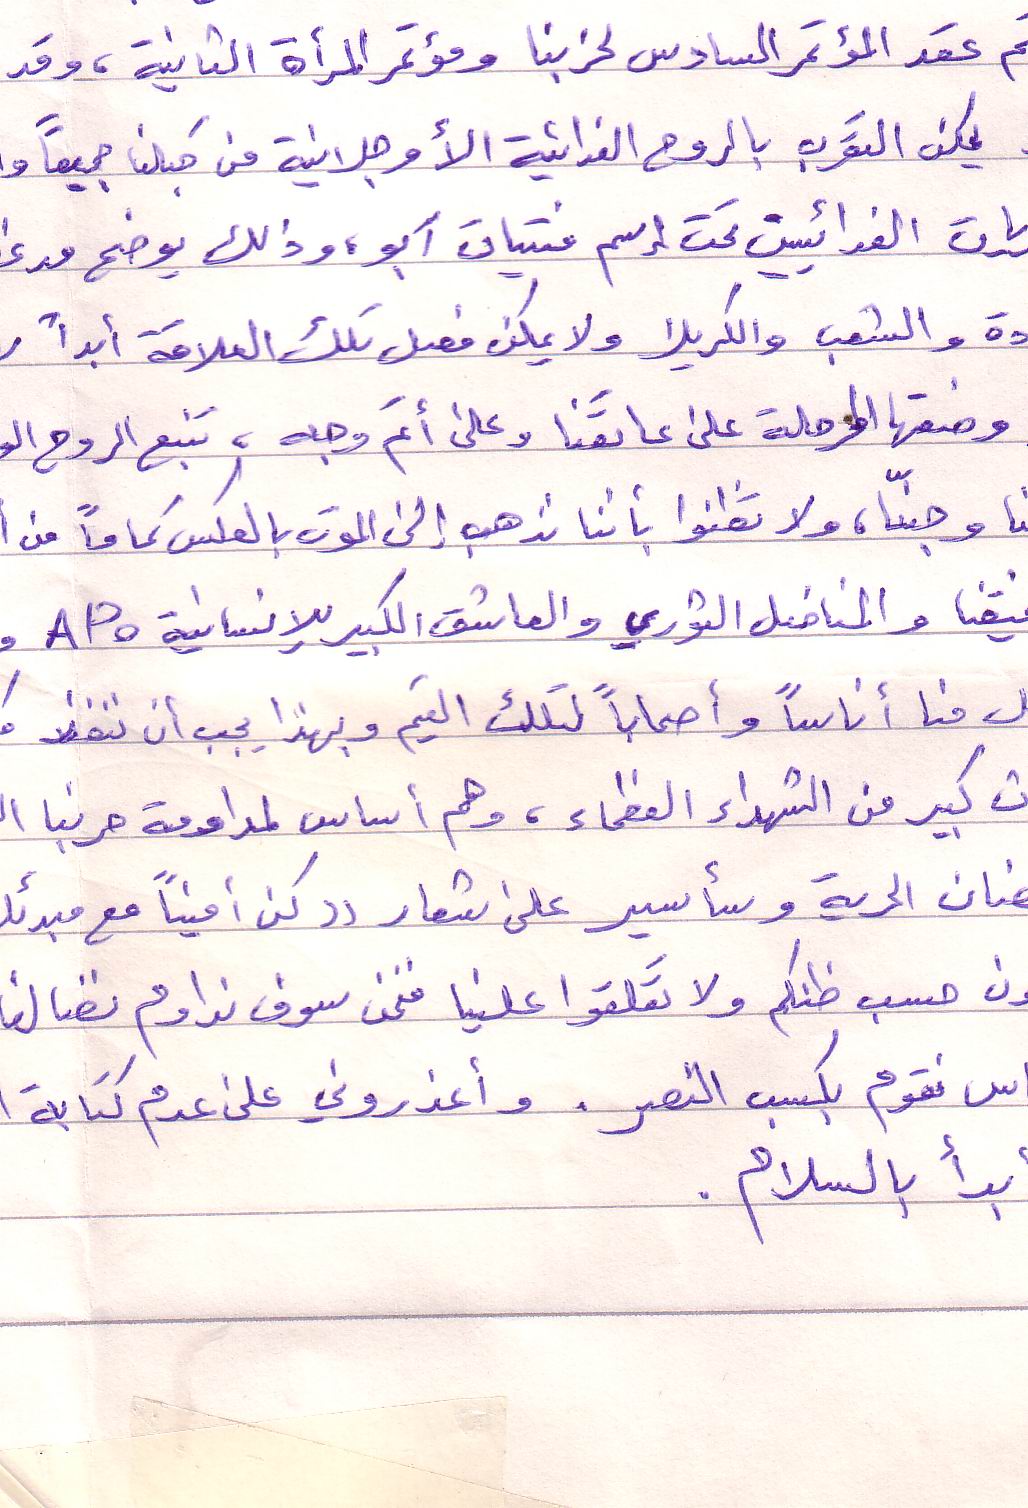 تم عقد المؤتمر السادس لحزبنا ومؤتمر المرأة الثانية، وقد
يمكن التقرب بالروح الفدائية الأوجلانية من قبلنا جميعاً
الفدائيين تحت إسم فتيات آبو، وذلك يوضح مدى
والشعب والكريلا ولا يمكن فصل تلك العلاقة أبداً
وضعتها المرحلة على عاتقنا وعلى أتم وجه، تتبع الروح
وحبنّا، ولا تظنوا بأننا نذهب إلى الموت بالعكس تماماً من
والمناضل الثوري والعاشق الكبير للإنسانية APO و
منا أناساً وأصحاباً لتلك القيم وبهذا يجب أن
كبير من الشهداء العظماء، وهم أساس لمداومة حربنا
الحرية وسأسير على شعار ((كن أميناً مع
حسب ظنكم ولا تقلقوا علينا فنحن سوف نداوم نضالنا
نقوم بكسب النصر. وأعذروني على عدم كتابة
أبدأ بالسلام.